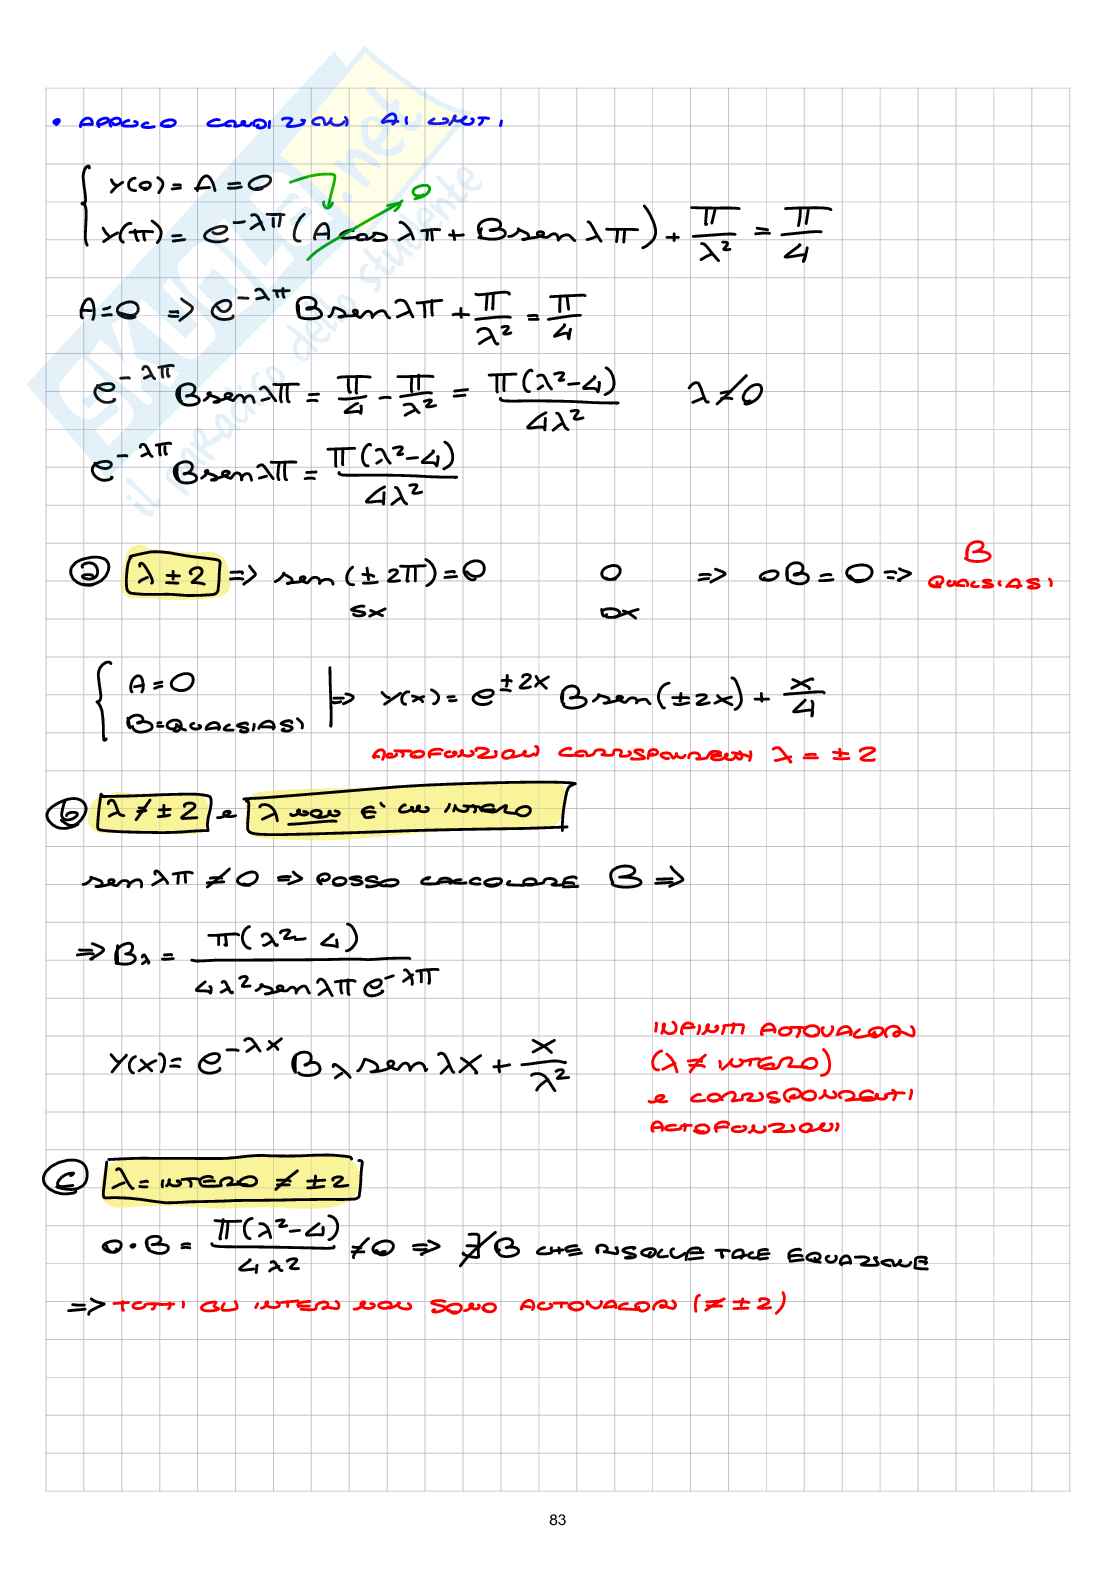 • APPLICO CONDIZIONI AI LIMITI
{ y(0) = A = 0
y(π) = e^{-λπ} (A cos λπ + B sen λπ) + π/λ² = π/4
0
A = 0 => e^{-λπ} B sen λπ + π/λ² = π/4
e^{-λπ} B sen λπ = π/4 - π/λ² = π(λ²-4)/4λ² λ ≠ 0
e^{-λπ} B sen λπ = π(λ²-4)/4λ²
ⓐ λ ± 2 => sen (± 2π) = 0 0 => 0B = 0 => B QUALSIASI
SX DX
{ A = 0
B = QUALSIASI | => y(x) = e^{±2x} B sen (±2x) + x/4
AUTOFUNZIONI CORRISPONDENTI λ = ± 2
ⓑ λ ≠ ± 2 e λ NON E' UN INTERO
sen λπ ≠ 0 => POSSO CALCOLARE B =>
=> B_λ = π(λ²- 4)/4λ² sen λπ e^{-λπ}
y(x) = e^{-λx} B_λ sen λx + x/λ²
INFINITI AUTOVALORI
(λ ≠ INTERO)
e CORRISPONDENTI
AUTOFUNZIONI
ⓒ λ = INTERO ≠ ± 2
0 · B = π(λ²-4)/4λ² ≠ 0 => ∄ B CHE RISOLVE TALE EQUAZIONE
=> TUTTI GLI INTERI NON SONO AUTOVALORI (≠ ± 2)
SKUOLA.net
il paradiso dello studente
83